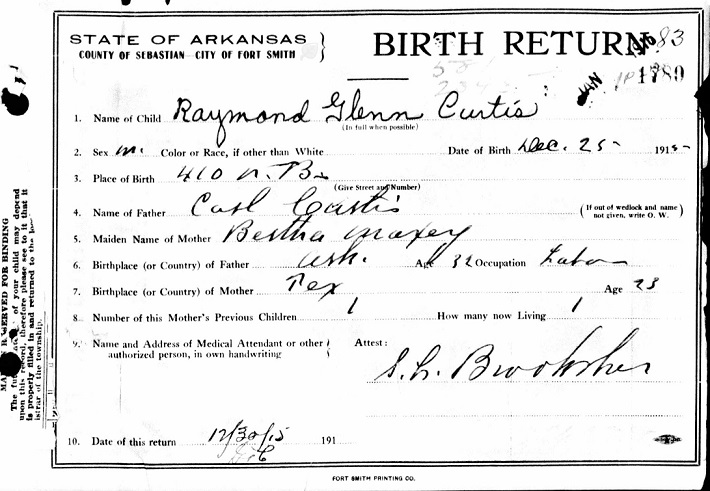 STATE OF ARKANSAS
COUNTY OF SEBASTIAN CITY OF FORT SMITH
BIRTH RETURN
83
JAN 1916
1789
1. Name of Child Raymond Glenn Curtis
(In full when possible)
2. Sex m. Color or Race, if other than White Date of Birth Dec. 25 - 1915-
3. Place of Birth 410 N. B
(Give Street and Number)
4. Name of Father Carl Curtis (If out of wedlock and name not given, write O. W.)
5. Maiden Name of Mother Bertha Maxey
6. Birthplace (or Country) of Father Ark. Age 32 Occupation Labor
7. Birthplace (or Country) of Mother Tex Age 23
8. Number of this Mother's Previous Children 1 How many now Living 1
9. Name and Address of Medical Attendant or other authorized person, in own handwriting Attest:
10. Date of this return 12/30/15 191
FORT SMITH PRINTING CO.
RESERVED FOR BINDING
of your child may depend
upon this record, therefore please see to it that it
is properly filled in and returned to the
istrar of the township.